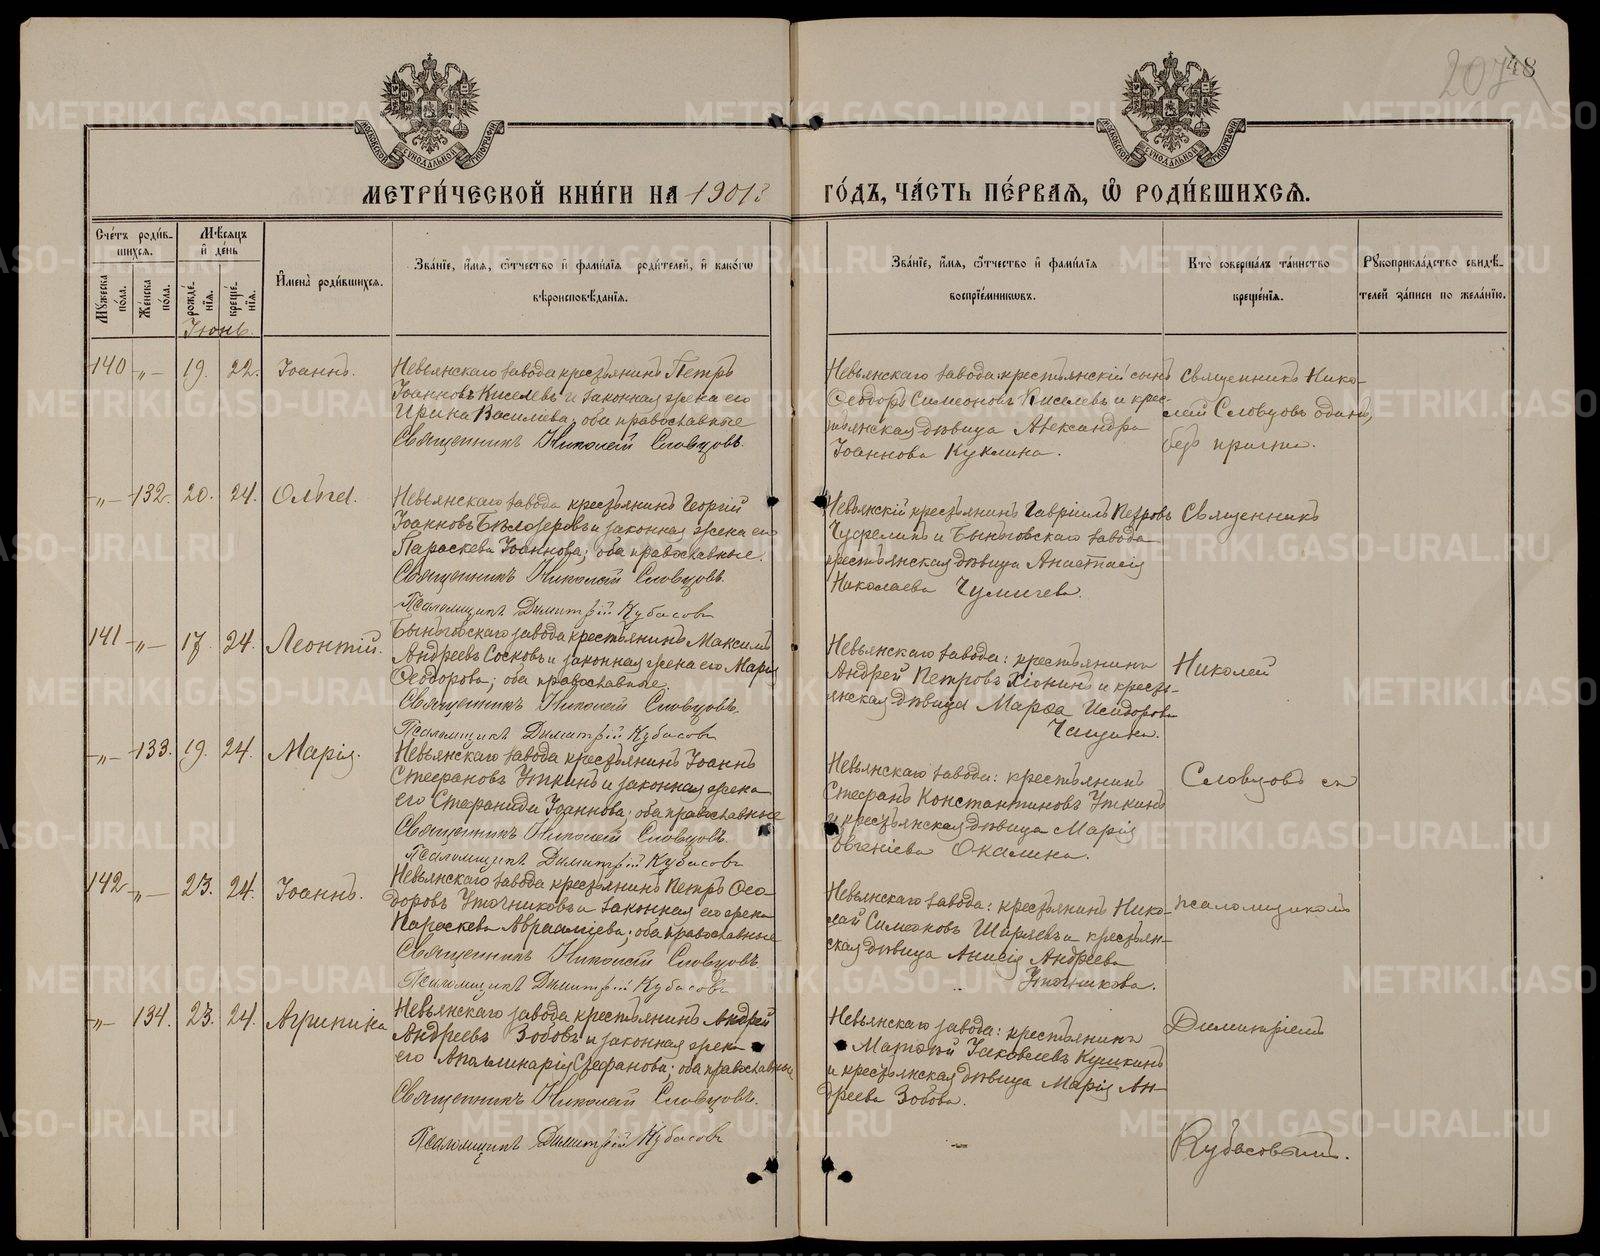 207 48
МЕТРИ́ЧЕСКОЙ КНИ́ГИ НА 1901 ГО́ДЪ, ЧА́СТЬ ПЕ́РВАЯ, Ѽ РОДИ́ВШИХСЯ.
Сче́тъ роди́в-
шихся.
Мѣ́сяцъ
и҆ де́нь
Мꙋ́жеска
по́ла.
Же́нска
по́ла.
рожде́-
нїя.
креще́-
нїя.
И҆мена̀ роди́вшихся.
Зва́нїе, и҆́мя, ѻ҆́тчество и҆ фамил́їя роди́телей, и҆ како́гѡ
вѣроисповѣ́данїя.
Зва́нїе, и҆́мя, ѻ҆́тчество и҆ фами́лїя
воспрїе́мникѡвъ.
Кто̀ соверша́лъ та́инство
креще́нїя.
Рꙋкоприкла́дство свидѣ́-
телей за́писи по жела́нїю.
Іюнь.
140 -„- 19. 22. Іоаннъ.
Невьянскаго завода крестьянинъ Петръ
Іоанновъ Киселевъ и законная жена его
Ирина Васильева, оба православные
Священникъ Николай Словцовъ.
Невьянскаго завода: крестьянскій сынъ
Ѳеодоръ Симеоновъ Киселевъ и крес-
тьянская дѣвица Александра
Іоаннова Куклина.
Священникъ Нико-
лай Словцовъ одинъ,
безъ причта.
-„- 132. 20. 24. Ольга.
Невьянскаго завода крестьянинъ Георгій
Іоанновъ Бѣлозеровъ и законная жена его
Параскева Іоаннова; оба православные.
Священникъ Николай Словцовъ.
Псаломщикъ Димитрій Кубасовъ
Невьянскій крестьянинъ Гавріилъ Петровъ
и Быньговскаго завода
крестьянская дѣвица Анастасія
Николаева Чумичева.
Священникъ
141 -„- 17. 24. Леонтій.
Быньговскаго завода крестьянинъ Максимъ
Андреевъ Сосковъ и законная жена его Марія
Ѳеодорова; оба православные.
Священникъ Николай Словцовъ.
Псаломщикъ Димитрій Кубасовъ
Невьянскаго завода: крестьянинъ
Андрей Петровъ Хіонинъ и кресть-
янская дѣвица Марѳа Исидорова
Чащина.
Николай
-„- 133. 19. 24. Марія.
Невьянскаго завода крестьянинъ Іоаннъ
Стефановъ Уткинъ и законная жена
его Стефанида Іоаннова; оба православные
Священникъ Николай Словцовъ.
Псаломщикъ Димитрій Кубасовъ
Невьянскаго завода: крестьянинъ
Стефанъ Константиновъ Уткинъ
и крестьянская дѣвица Марія
Евгеніева Окалина.
Словцовъ съ
142 -„- 23. 24. Іоаннъ.
Невьянскаго завода крестьянинъ Петръ Ѳео-
доровъ Уточниковъ и законная его жена
Параскева Авраамиева; оба православные
Священникъ Николай Словцовъ.
Псаломщикъ Димитрій Кубасовъ
Невьянскаго завода: крестьянинъ Нико-
лай Симеоновъ Ширяевъ и крестьян-
ская дѣвица Анисія Андреева
Уточникова.
псаломщикомъ
-„- 134. 23. 24. Агрипина
Невьянскаго завода крестьянинъ Андрей
Андреевъ Зобовъ и законная жена
его Аполлинарія Стефанова; оба православные
Священникъ Николай Словцовъ.
Псаломщикъ Димитрій Кубасовъ
Невьянскаго завода: крестьянинъ
Матѳій Іаковлевъ Кушкинъ
и крестьянская дѣвица Марія Ан-
дреева Зобова.
Димитріемъ
Кубасовымъ.